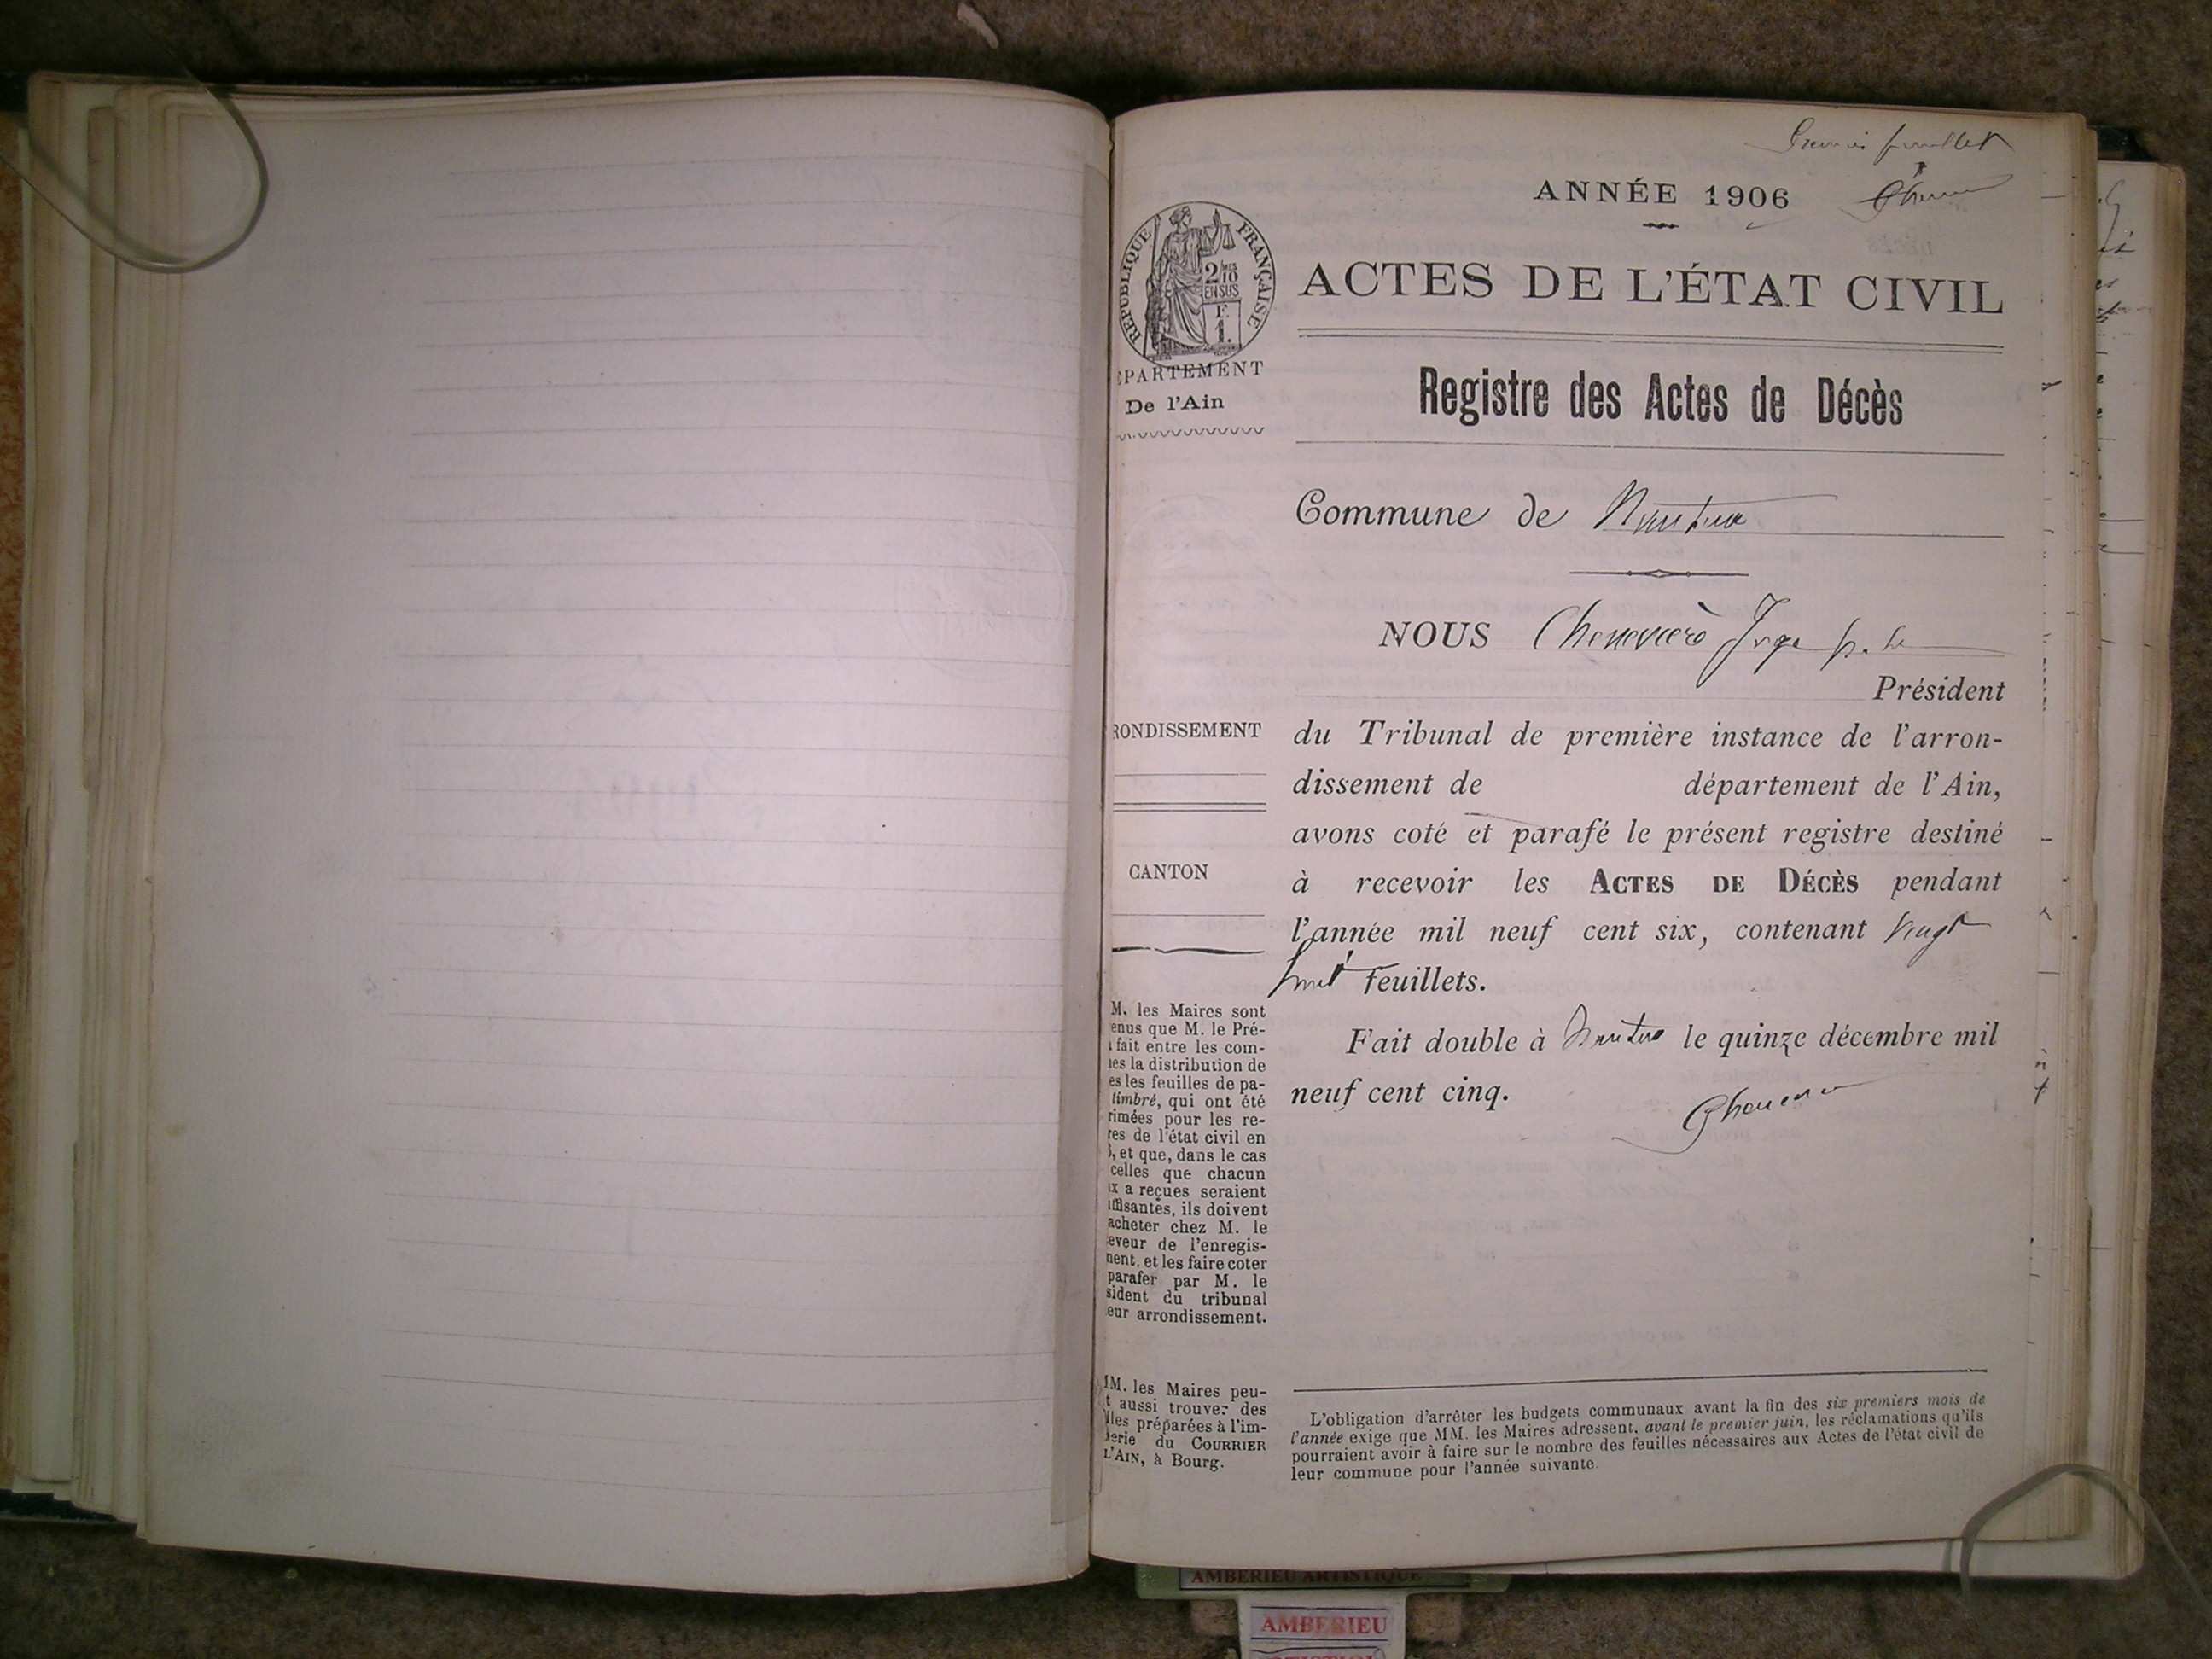 Premier feuillet
ANNÉE 1906
RÉPUBLIQUE FRANÇAISE
2/10
EN SUS
F.
1.
ACTES DE L'ÉTAT CIVIL
PARTEMENT
De l'Ain
Registre des Actes de Décès
Commune de Nantua
NOUS Juge p. le
Président
RONDISSEMENT
du Tribunal de première instance de l'arron-
dissement de département de l'Ain,
avons coté et parafé le présent registre destiné
CANTON
à recevoir les ACTES DE DÉCÈS pendant
l'année mil neuf cent six, contenant vingt
huit feuillets.
Fait double à Nantua le quinze décembre mil
neuf cent cinq.
M. les Maires sont
enus que M. le Pré-
fait entre les com-
es la distribution de
es les feuilles de pa-
timbré, qui ont été
rimées pour les re-
res de l'état civil en
, et que, dans le cas
celles que chacun
x a reçues seraient
ffisantes, ils doivent
acheter chez M. le
eveur de l'enregis-
ment, et les faire coter
parafer par M. le
sident du tribunal
eur arrondissement.
MM. les Maires peu-
t aussi trouver des
lles préparées à l'im-
erie du COURRIER
L'AIN, à Bourg.
L'obligation d'arrêter les budgets communaux avant la fin des six premiers mois de
l'année exige que MM. les Maires adressent, avant le premier juin, les réclamations qu'ils
pourraient avoir à faire sur le nombre des feuilles nécessaires aux Actes de l'état civil de
leur commune pour l'année suivante.
AMBERIEU ARTISTIQUE
AMBERIEU